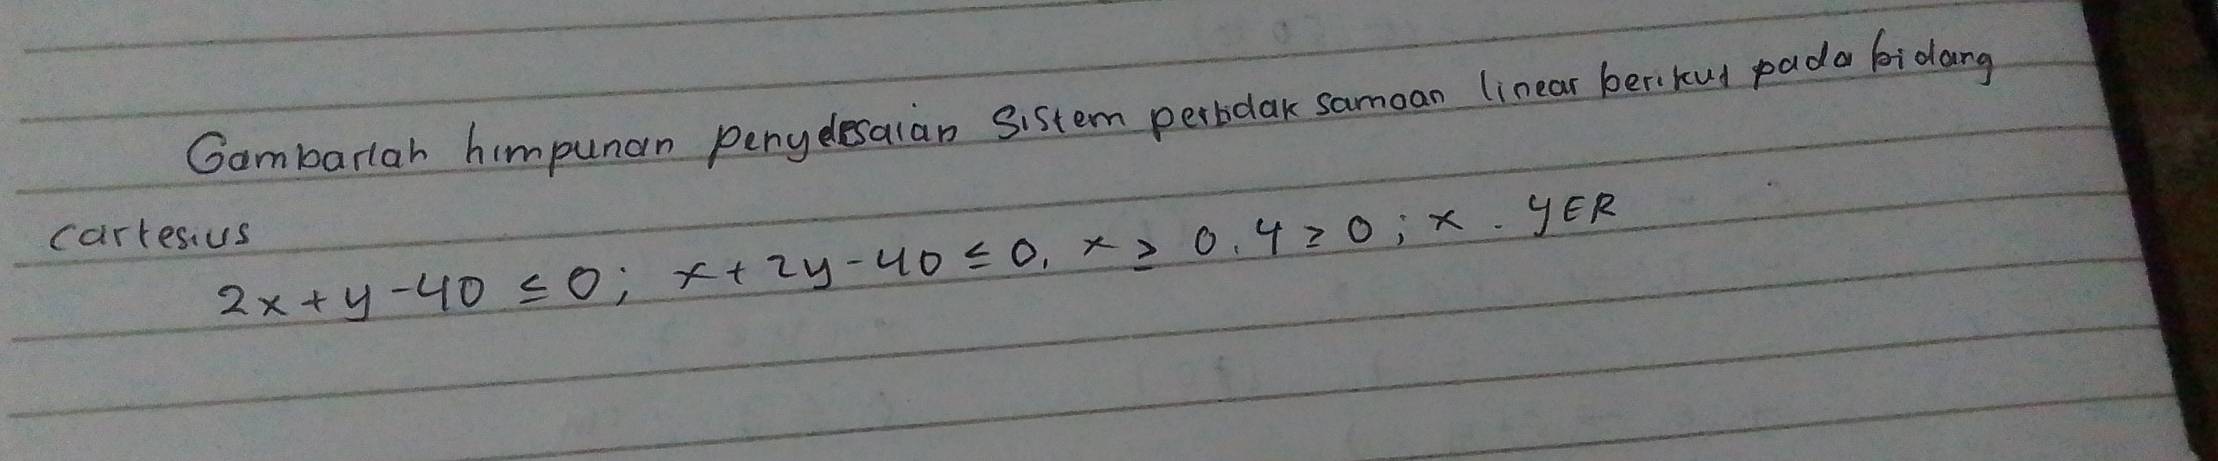 Gambarlah himpunan penyelesaian sistem pertidak samaan linear berikut pada bidang
cartesius
2x + y - 40 ≤ 0; x + 2y - 40 ≤ 0, x ≥ 0, y ≥ 0; x . y ∈ R